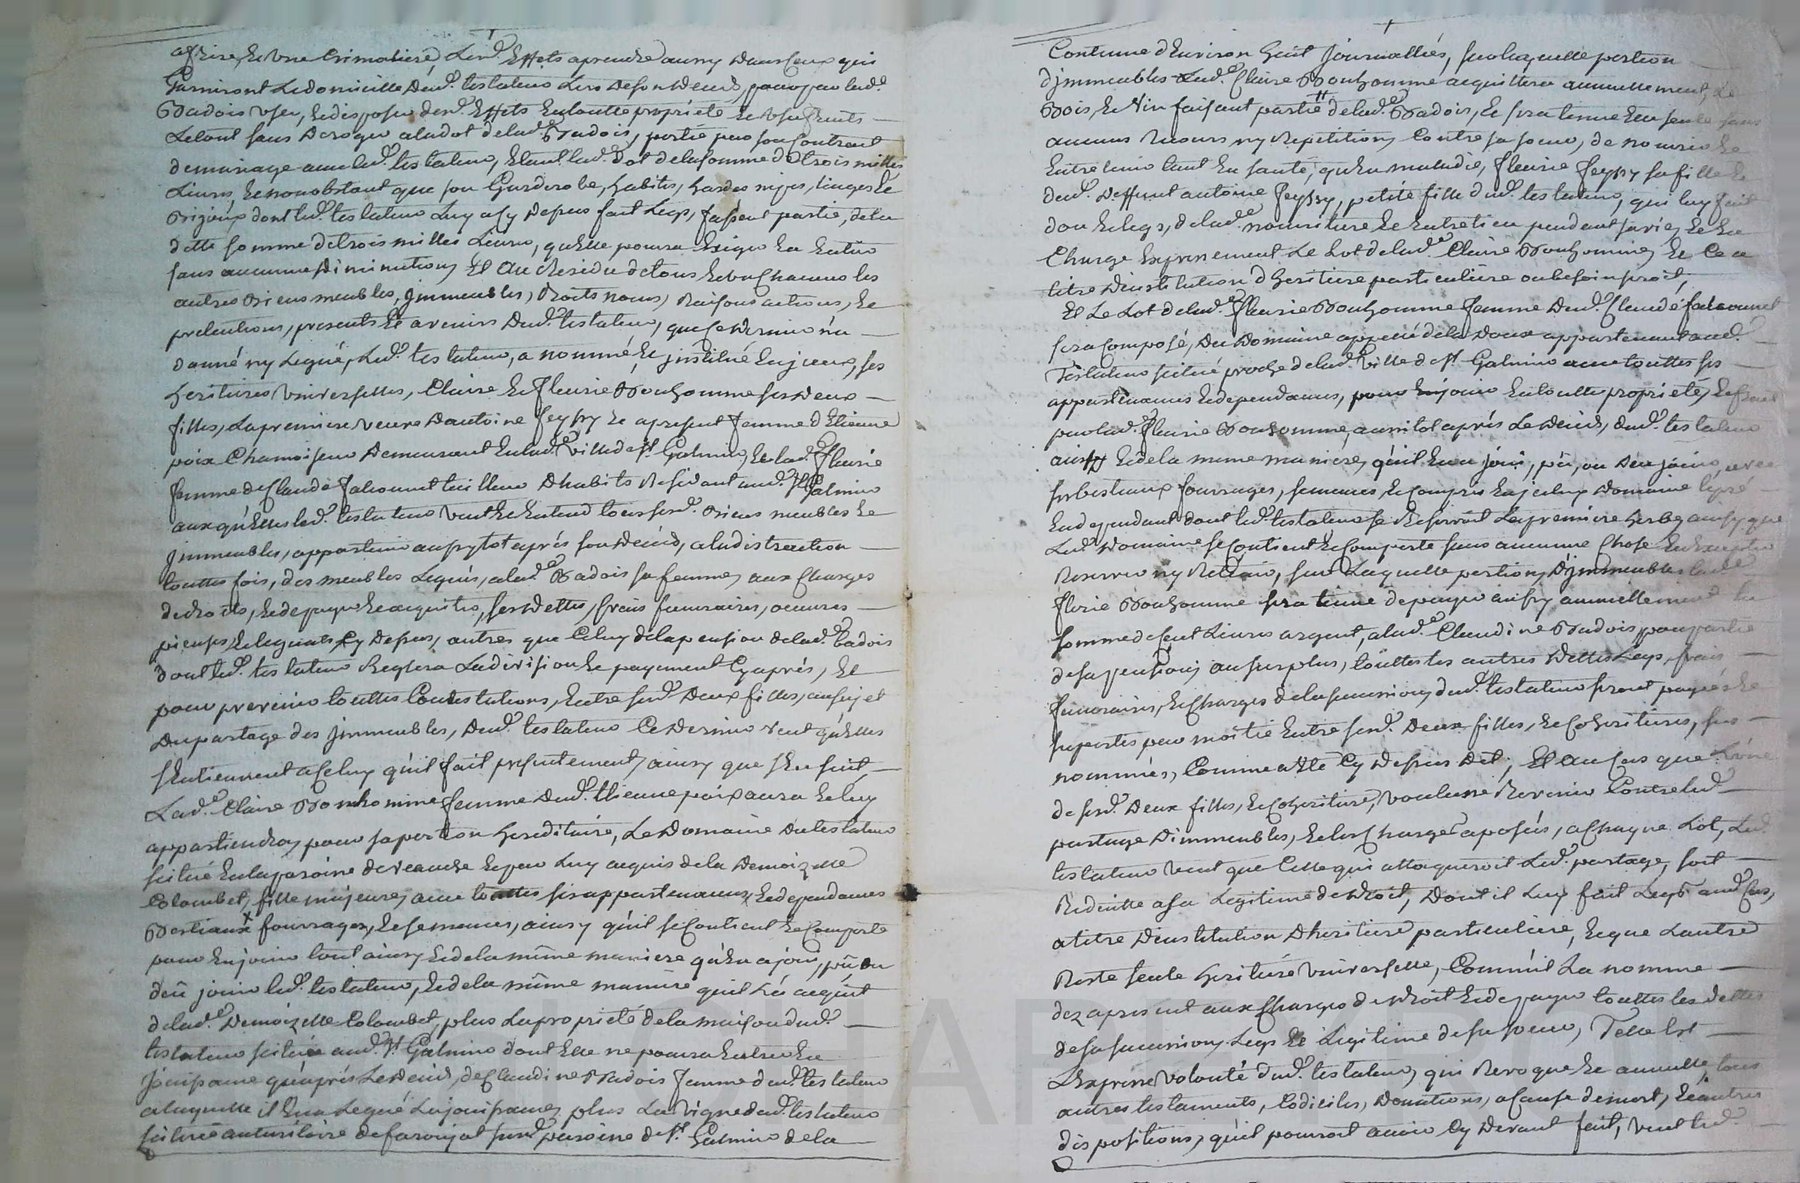 affaire, et une Crimaliere Lesd. Effets a prendre aussy dans Ceux qui
Garniront Le domicille dud. testateur Lors de son deceds, pour par lad.e
Badois user, et disposer desd. Effets En toutte proprieté et usufruits
Le tout sans deroger a la dot de lad.e Badois, portée par son Contract
de mariage avec led. testateur, Etant lad. dot de la somme de trois milles
Livres, et nonobstant que son Garderobe, habits, hardes nipes, linges et
Bijoux dont led. testateur Luy a Cy dessus fait Legs, fassent partie, de la
ditte somme de trois milles Livres, qu'elle poura Exiger En Entier
sans aucunne diminution, Et Au Residu de tous et un Chacuns les
autres Biens meubles, jmmeubles, droits noms, Raisons actions, et
pretentions, presents et avenirs dud. testateur, que Ce dernier n'a
donné ny Legué, Led. testateur, a nommé, et jnstitué En jceux, ses
heritieres universelles, Claire et fleurie Bonhomme ses deux
filles, La premiere veuve d'antoine feyssy et a present femme d'Etienne
poix Chamoiseur demeurant En lad. ville de st Galmier, et lad. fleurie
femme de Claude falconnet tailleur d'habits Residant aud. st Galmier
auxqu'elles led. testateur veut et Entend tous sesd. Biens meubles et
jmmeubles, appartenir aussytot aprés son deceds, a la distraction
touttes fois, des meubles Legués, a lad.e Badois sa femme, aux Charges
de droits, et de payer et acquitter, ses dettes, frais funeraires, oeuvres
pieuses, et leguats, Cy dessus, autres que Celuy de la pension de lad.e Badois
dont led. testateur Reglera La division et payement Cy aprés, Et
pour prevenir touttes Contestations, Entre sesd. deux filles, au sujet
du partage des jmmeubles, dud. testateur Ce dernier veut qu'elles
s'En tiennent a Celuy qu'il fait presentement, ainsy que s'En suit,
Lad.e Claire Bonhomme femme dud. Etienne poix aura et luy
appartiendra, pour sa portion hereditaire, Le domaine du testateur
scitué En la paroisse de veauche et par Luy acquis de la demoizelle
Colombet, fille majeure, avec touttes ses appartenances, et dependances
Bestiaux fourrages, et semences, ainsy qu'il se Contient et Comporte
pour En jouir tout ainsy et de la même maniere qu'En a joui, pû ou
deû jouir led. testateur, et de la même maniere qu'il L'a acquit
de lad.e demoizelle Colombet, plus La proprieté de la maison dud.
testateur scituée aud. st Galmier dont Elle ne poura Entrer En
Jouissance qu'aprés Le deceds, de Claudine Badois femme dud. testateur
a laquelle il En a Legué La jouissance, plus La vigne dud. testateur
scituée au territoire de faroujat susd. paroisse de st Galmier de la
Contenue d'Environ huit Journallées, sur laquelle portion
d'jmmeubles Lad.e Claire Bonhomme acquittera annuellement, Le
Bois, et vin faisant partie de lad.e Badois, et sera tenue Elle seule sans
aucuns Recours ny Repetition, Contre sa soeur, de nourrir et
Entretenir tant En santé, qu'En maladie, fleurie feyssy sa fille et
dud. deffunt antoine feyssy, petite fille dud. testateur, qui luy fait
don et legs, de lad.e nourriture et Entretien pendant sa vie, et En
Charge Expressement Le Lot de lad.e Claire Bonhomme, et Ce a
titre d'institution d'heritiere particuliere ou besoin seroit,
Et Le Lot de lad.e fleurie Bonhomme femme dud. Claude falconnet
sera Composé, du domaine appellé de la doux appartenant aud.
Testateur scitué proche de lad.e ville de st Galmier avec touttes ses
appartenances et dependances, pour En jouir En toutte proprieté, et fruit
par lad.e fleurie Bonhomme, aussitot aprés Le deceds, dud. testateur
aussy et de la même maniere, qu'il En a joui, pû, ou deu jouir, avec
ses bestiaux fourrages, semences, et Compris En jceluy domaine
En dependant dont led. testateur se Reservoit La premiere herbe, ainsy que
Led. domaine se Contient et Comporte sans aucunne Chose En Excepter
Reserver ny Retenir, sur Laquelle portion d'jmmeubles Lad.e
fleurie Bonhomme sera tenue de payer aussy annuellement la
somme de Cent Livres argent, a lad.e Claudine Badois, pour partie
de sa pention, au surplus, touttes les autres dettes, Legs, frais
funeraires, et Charges de la succession, dud. testateur seront payées et
suportés par moitié Entre sesd. deux filles, et Coheritieres, sus
nommées, Comme a Eté Cy dessus dit, Et au Cas que L'une
de sesd. deux filles, et Coheritieres, voulusse Revenir Contre led.
partage d'immeubles, et les Charges aposées, a Chaque Lot, Led.
testateur veut que Celle qui attaqueroit Led. partage, soit
Reduitte a sa Legitime de droit, dont il Luy fait Legs aud. Cas,
a titre d'institution d'heritiere particuliere, et que L'autre
Reste seule heritiere universelle, Comm'il La nomme
dez a present aux Charges de droit et de payer touttes les dettes
de sa succession, Legs et Legitime de sa soeur, Telle Est
L'Expresse volonté dud. testateur, qui Revoque et annulle tous
autres testaments, Codiciles, donations, a cause de mort, et autres
dispositions, qu'il pouroit avoir Cy devant fait, veut led.